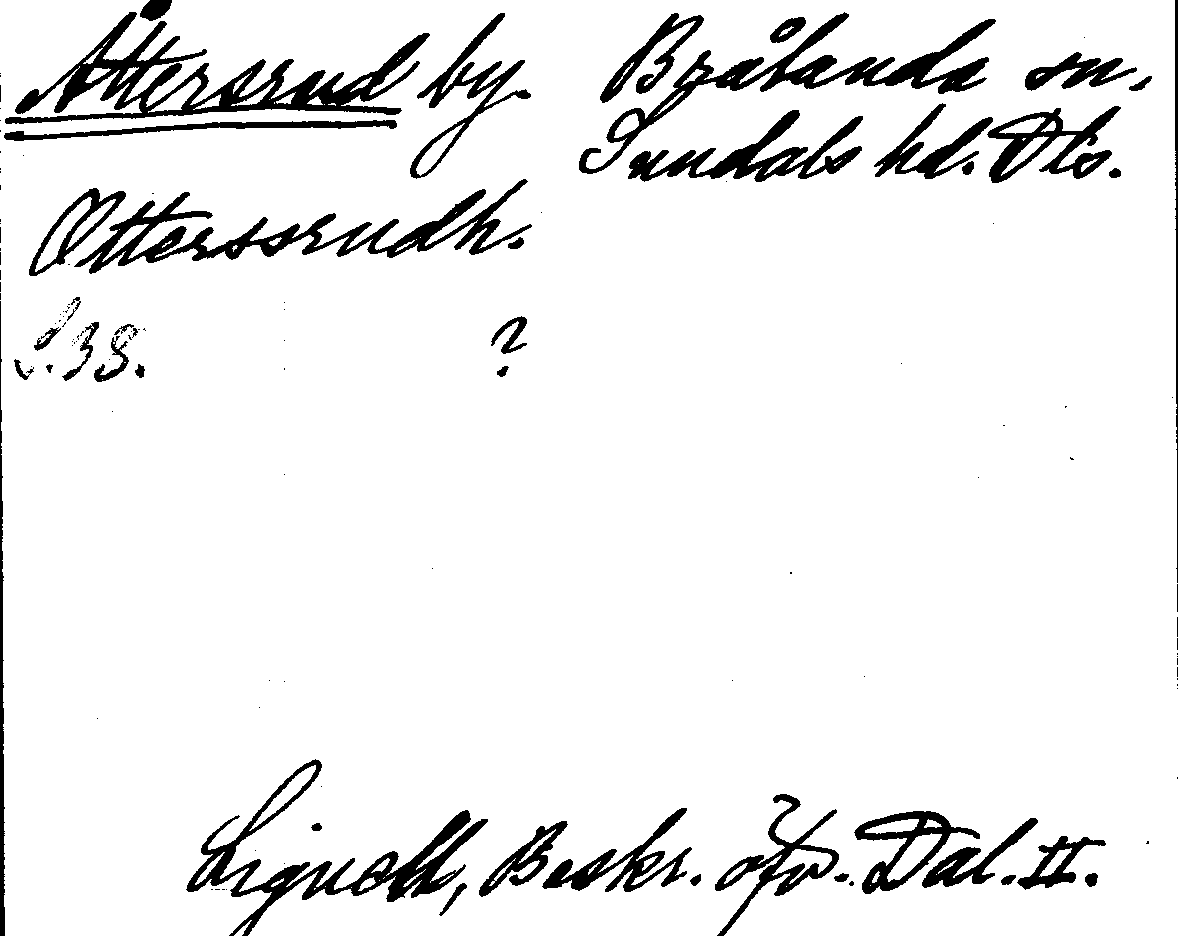 Åttersrud by. Brålanda sn.
Sundals hd. Dls.
Otterssrudh.
S. 38. ?
Lignell, Beskr. öfv. Dal. II.